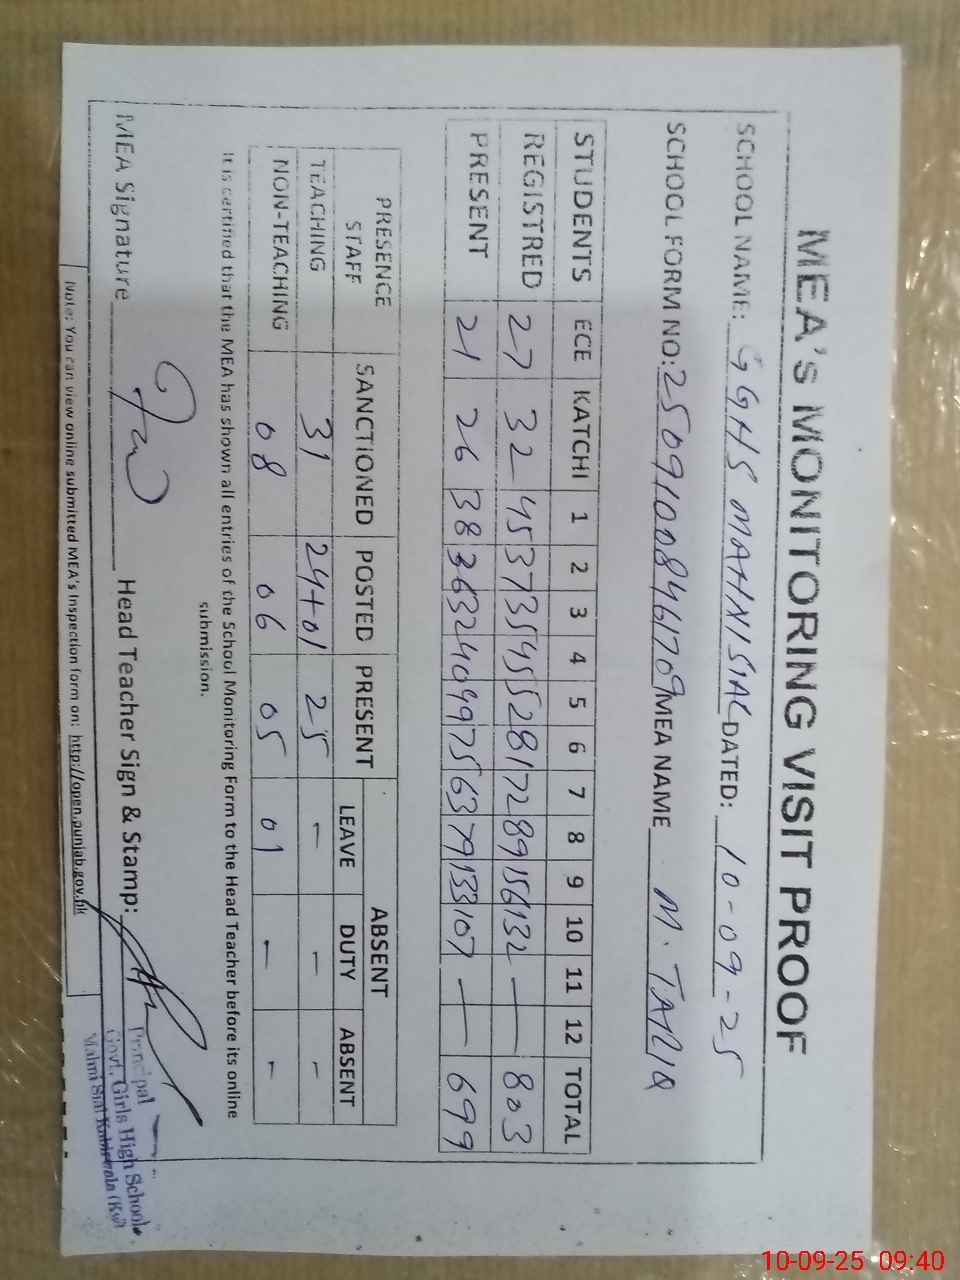 MEA's MONITORING VISIT PROOF
SCHOOL NAME: GGHS MAHNI SIAL DATED: 10-09-25
SCHOOL FORM NO: 25091008461709 MEA NAME M. TARIQ
STUDENTS ECE KATCHI 1 2 3 4 5 6 7 8 9 10 11 12 TOTAL
REGISTRED 27 32 45 37 35 45 52 81 72 89 156 132 — 803
PRESENT 21 26 38 36 32 40 49 75 63 79 133 107 — 699
PRESENCE STAFF SANCTIONED POSTED PRESENT ABSENT
LEAVE DUTY ABSENT
TEACHING 31 24+01 25 - - -
NON-TEACHING 08 06 05 01 - -
It is certified that the MEA has shown all entries of the School Monitoring Form to the Head Teacher before its online
submission.
MEA Signature Head Teacher Sign & Stamp:
Principal
Govt. Girls High School
Mahni Sial Kabirwala (Kwl)
Note: You can view online submitted MEA's Inspection form on: http://open.punjab.gov.pk
10-09-25 09:40